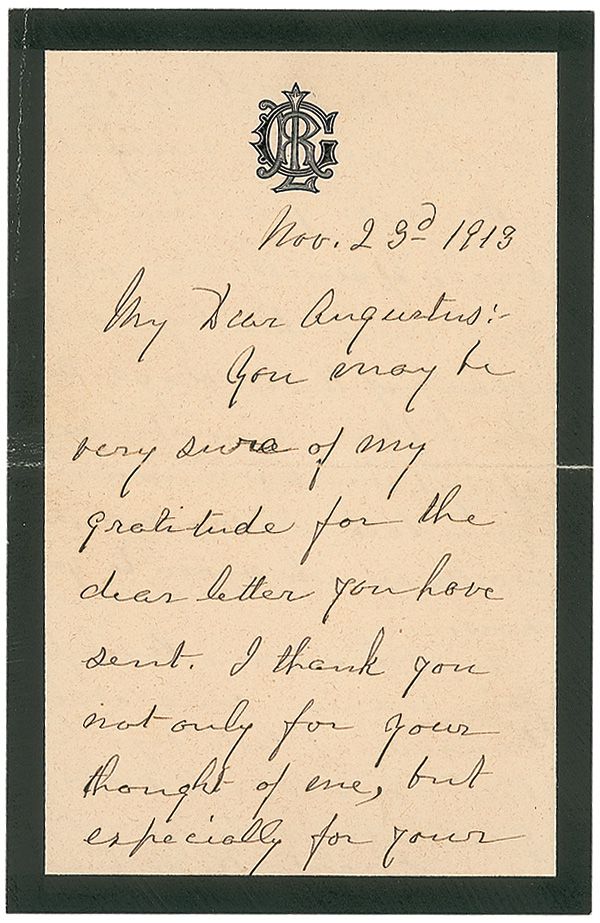 Nov. 23d 1913
My Dear Augustus:-
You may be
very sure of my
gratitude for the
dear letter you have
sent. I thank you
not only for your
thought of me, but
especially for your